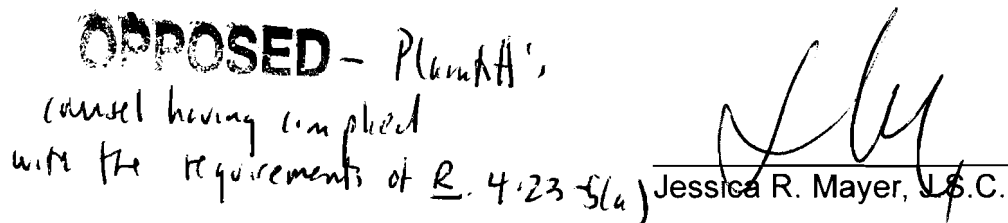 OPPOSED – Plaintiff's
counsel having complied
with the requirements of R. 4:23-5(a)
Jessica R. Mayer, J.S.C.